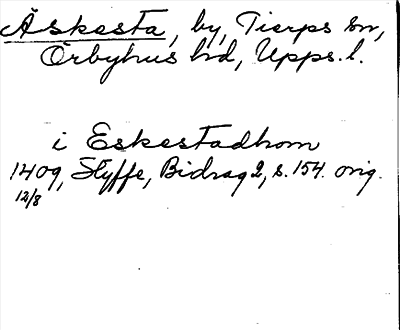 Äskesta, by, Tierps sn,
Örbyhus hd, Upps. l.
i Eskestadhom
1409, Styffe, Bidrag 2, s. 154. orig.
12/8